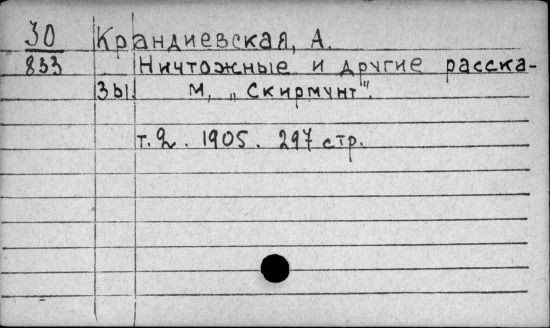 30 Крандиевская, А.
833 Ничтожные и другие расска-
зы. М, „Скирмунт".
т. 2. 1905. 297 стр.